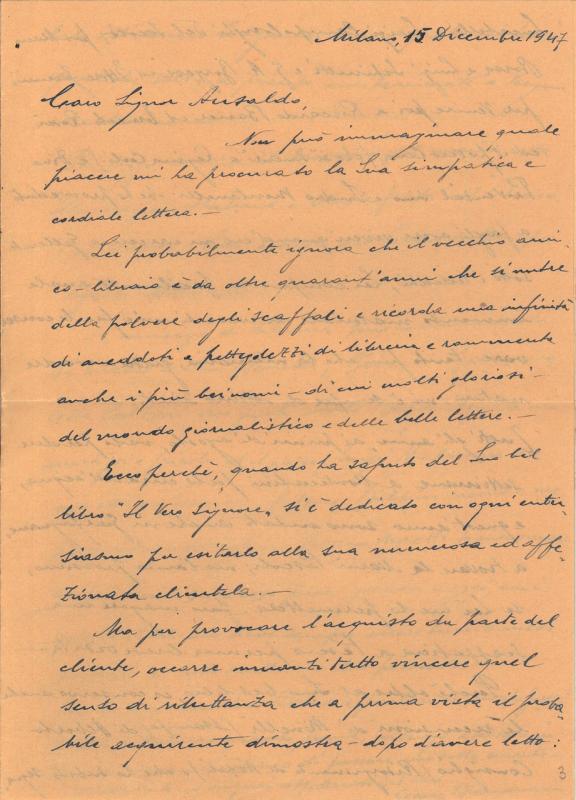 Milano, 15 Dicembre 1947
Caro Signor Ansaldo,
Non può immaginare quale
piacere mi ha procurato la Sua simpatica e
cordiale lettera. —
Lei probabilmente ignora che il vecchio ami-
co-libraio è da oltre quarant'anni che si nutre
della polvere degli scaffali e ricorda una infinità
di aneddoti e pettegolezzi di librerie e rammenta
anche i più bei nomi — di cui molti gloriosi —
del mondo giornalistico e delle belle lettere. —
Ecco perchè, quando ha saputo del Suo bel
libro "Il Vero Signore", si è dedicato con ogni entu-
siasmo per esitarlo alla sua numerosa ed affe-
zionata clientela. —
Ma per provocare l'acquisto da parte del
cliente, occorre innanzi tutto vincere quel
senso di riluttanza che a prima vista il proba-
bile acquirente dimostra — dopo d'avere letto:
3